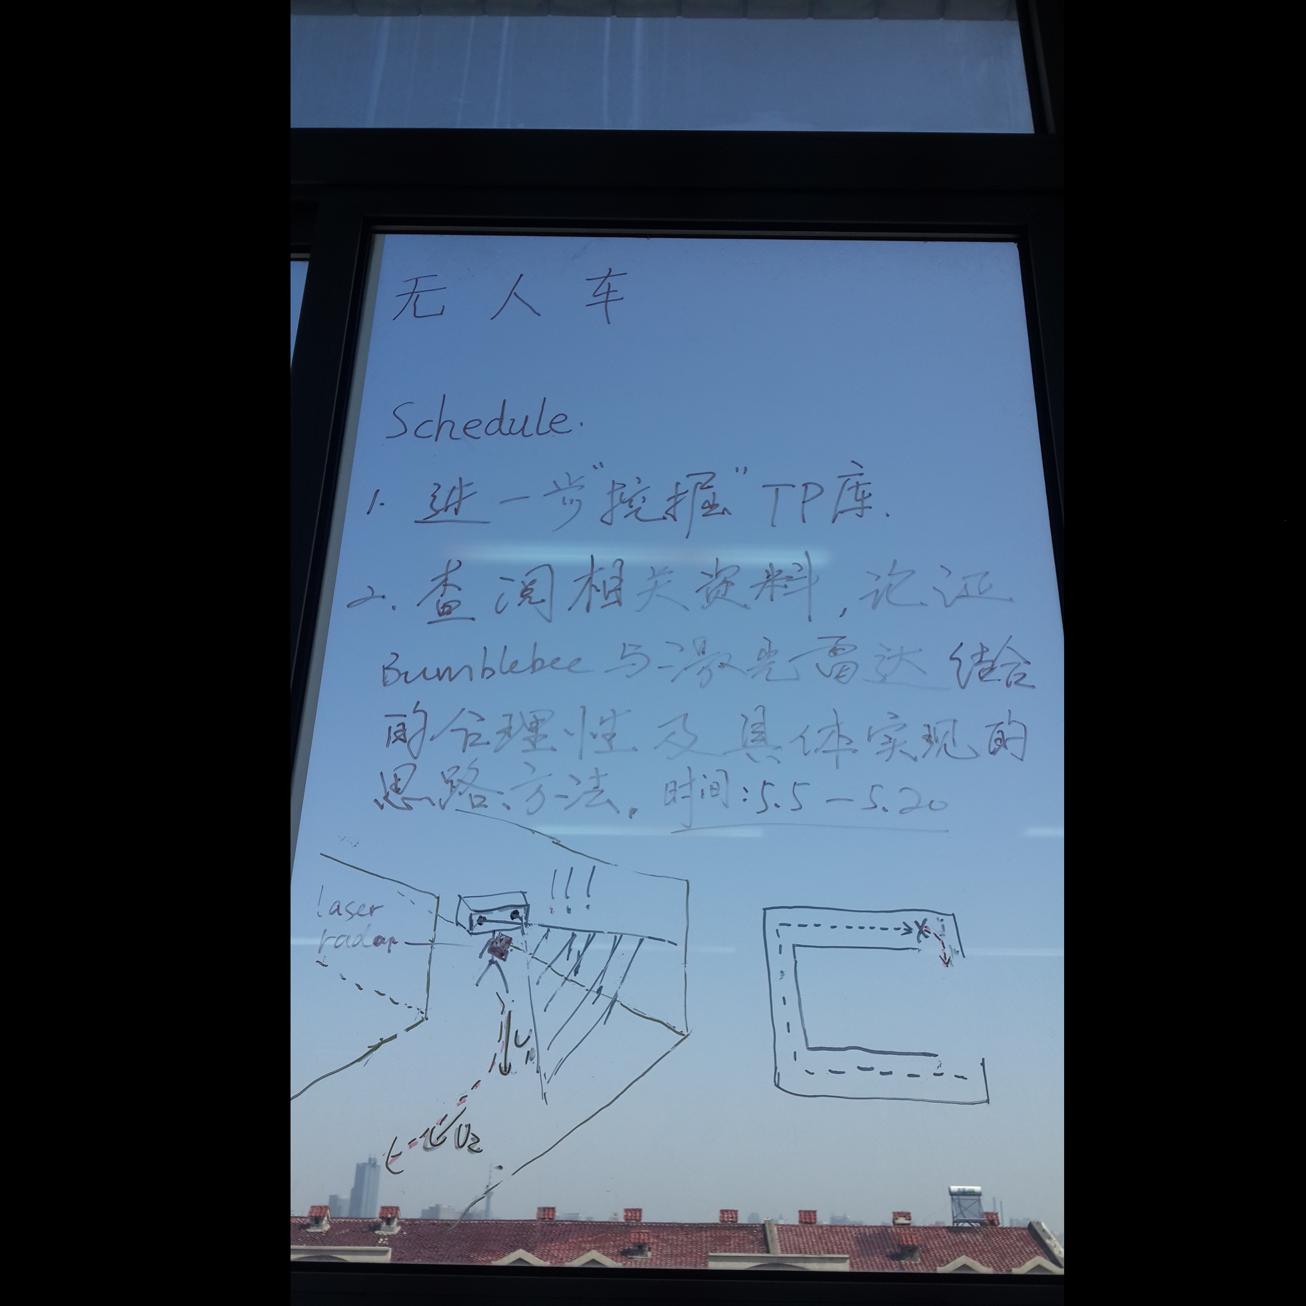 无人车
Schedule.
1. 进一步"挖掘"TP库.
2. 查阅相关资料,论证
Bumblebee与激光雷达结合
的合理性及具体实现的
思路、方法。时间:5.5-5.20
!!!
laser
radar
U1
U2